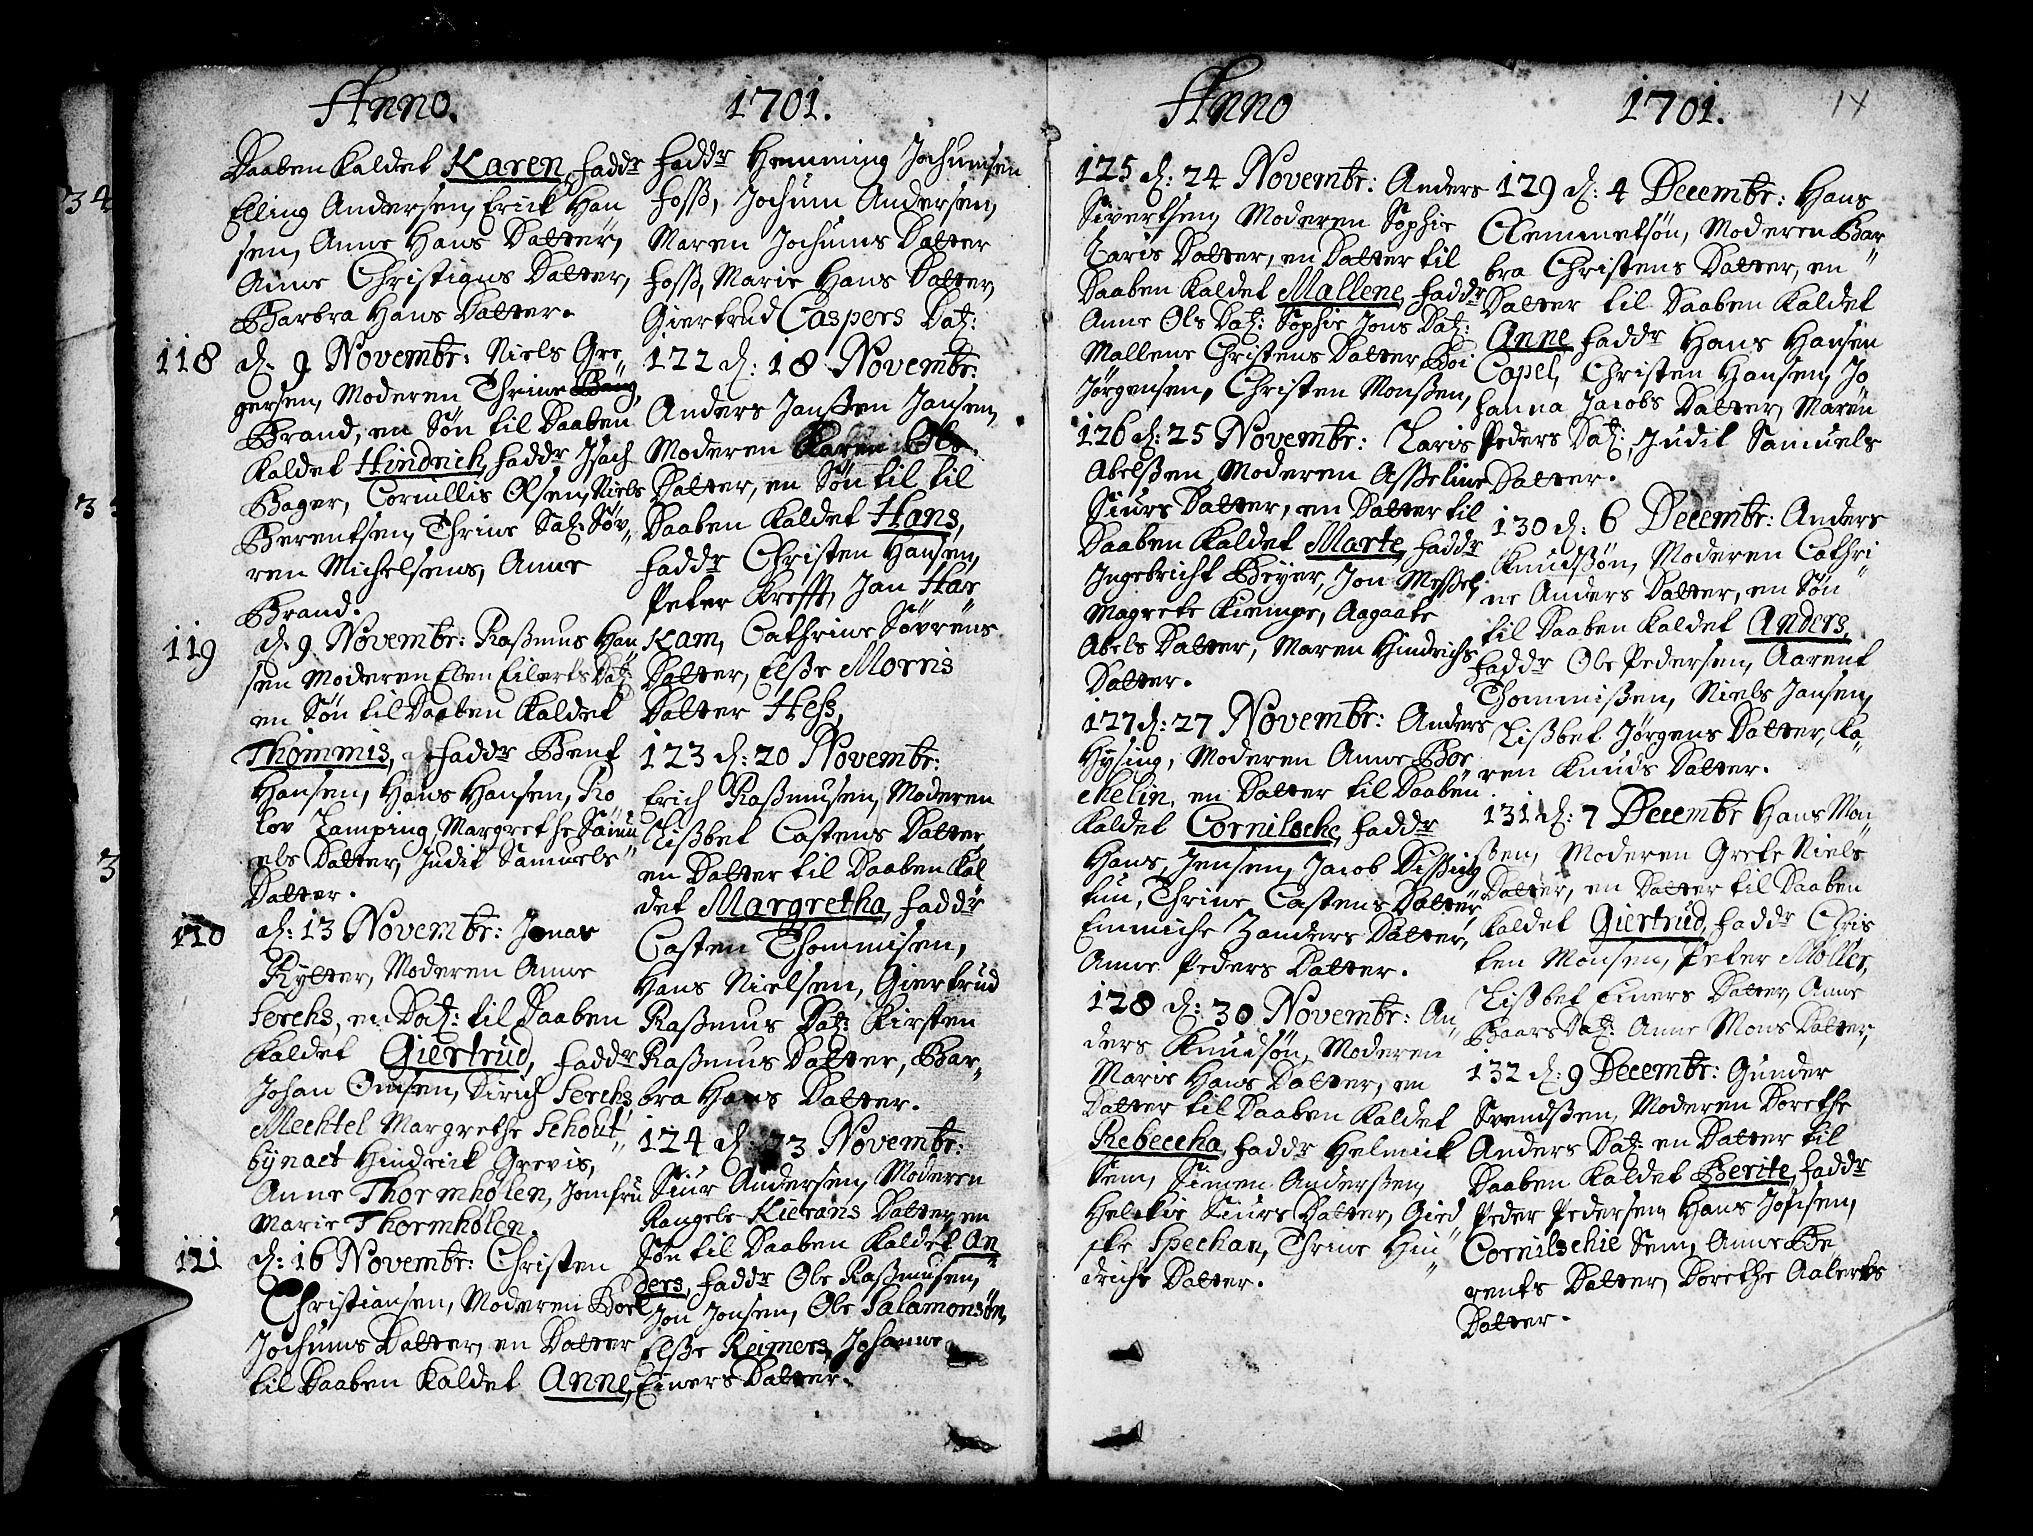 Anno. 1701.
Daaben kaldet Karen, Faddr
Elling Andersen, Erick Han
sen, Anne Hans Datter,
Anne Christians Datter,
Barbra Hans Datter.
118 d. 9 Novembr: Niels Gre,
gersen, Moderen Thrine
Brand, en Søn til Daaben
kaldet Hindrich, Faddr Isach
Bager, Cornillis Olsen, Niels
Berentsen, Thrine Sal: Søv,,
ren Michelsens, Anne
Brand.
119 d. 9 Novembr: Rasmus Han
sen Moderen Elen Eilerts Datt:
en Søn til Daaben kaldet
Thommis, Faddr Bent
Hansen, Hans Hansen, Ro
lov Lamping, Margrethe Samu
els Datter, Judit Samuels
Datter.
120 d: 13 Novembr: Jonas
Rytter, Moderen Anne
Ferchs, en Datt: til Daaben
kaldet Giertrud, Faddr
Johan Omsen, Dirich Ferchs,
Mechtel Margrethe Schout,,
bynaet Hindrick Grevis,
Anne Thormhølen, Jomfru
Marie Thormhølen.
121 d: 16 Novembr: Christen
Christiansen, Moderen Boel
Jochums Datter, en Datter
til Daaben kaldet Anne,
Faddr Hemming Jochumsen
Foss, Jochum Andersen,
Maren Jochums Datter
Foss, Marie Hans Datter,
Giertrud Caspers Datt:
122 d: 18 Novembr:
Anders Janssen Jansen,
Moderen Karen Ols
Datter, en Søn til til
Daaben kaldet Hans,
Faddr Christen Hansen,
Peter Krefft, Jan Har
kam, Cathrine Søvrens
Datter, Elsse Morris
Datter Hess,
123 d: 20 Novembr:
Erich Rasmusen, Moderen
Lissbet Castens Datter
en Datter til Daaben kal
det Margretha, Faddr
Casten Thommisen,
Hans Nielsen, Giertrud
Rasmus Datt: Kirsten
Rasmus Datter, Bar,,
bra Hans Datter.
124 d: 23 Novembr:
Siur Andersen, Moderen
Rangele Kierans Datter, en
Søn til Daaben kaldet An
ders, Faddr Ole Rasmusen,
Jon Jonsen, Ole Salamonsøn,
Elsse Reimers, Johanne
Einers Datter.
Anno 1701. 14
125 d: 24 Novembr: Anders
Sivertsen, Moderen Sophie
Laris Datter, en Datter til
Daaben kaldet Mallene, Faddr
Anne Ols Datt: Sophie Jons Datt:
Mallene Christens Datter, Boi
Jørgensen, Christen Monssen,
126 d: 25 Novembr: Laris
Abelssen, Moderen Asseline
Siurs Datter, en Datter til
Daaben kaldet Marte, Faddr
Ingebricht Beyer, Jon Messel,
Magrete Kiempe, Aagaate
Abels Datter, Maren Hindrichs
Datter.
127 d: 27 Novembr: Anders
Hysing, Moderen Anne Bor
chelin, en Datter til Daaben
kaldet Cornilsche, Faddr
Hans Jensen, Jacob Dissing
tun, Thrine Castens Datter,
Emmiche Zanders Datter,
Anne Peders Datter.
128 d: 30 Novembr: An,,
ders Knudsøn, Moderen
Marie Hans Datter, en
Datter til Daaben kaldet
Rebeccha, Faddr Helmick
Sem, Simen Anderssen,
Helchie Siurs Datter, Gied
ske Spechan, Thrine Hin,,
drichs Datter.
129 d: 4 Decembr: Hans
Clemmetsøn, Moderen Bar
bra Christens Datter, en
Datter til Daaben kaldet
Anne Faddr Hans Hansen
Capel, Christen Hansen, Jo
hanna Jacobs Datter, Maren
Peders Datt:, Judit Samuels
Datter.
130 d: 6 Decembr: Anders
Knudssøn, Moderen Cathri
ne Anders Datter, en Søn
til Daaben kaldet Anders,
Faddr Ole Pedersen, Aarent
Thommissen, Niels Jansen,
Lissbet Jørgens Datter, Ka,,
ren Knuds Datter.
131 d: 7 Decembr Hans Mon,
ssen, Moderen Grete Niels
Datter, en Datter til Daaben
kaldet Giertrud, Faddr Chris
ten Monsen, Peter Møller,
Lissbet Einers Datter, Anne
Baars Datt: Anne Mons Datter,
132 d: 9 Decembr: Gunder
Svendssen, Moderen Dorethe
Anders Datt: en Datter til
Daaben kaldet Berite, Faddr
Peder Pedersen, Hans Josisen,
Cornilschie Sem, Anne Be
rents Datter, Dorethe Aalerts
Datter.